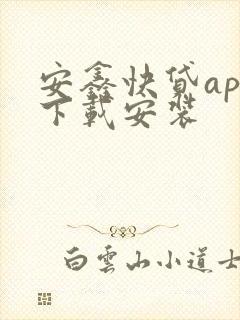 安鑫快贷ap
下载安装
白雲山小道士